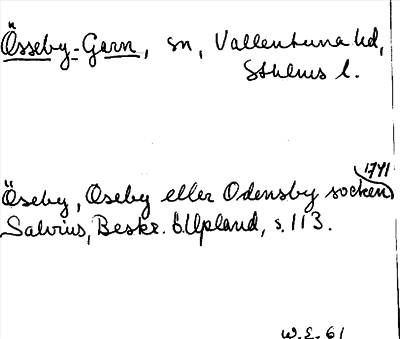 Össeby-Garn, sn, Vallentuna hd,
Sthlms l.
1741
Öseby, Oseby eller Odensby socken
Salvius, Beskr. ö. Upland, s. 113.
W.E. 61